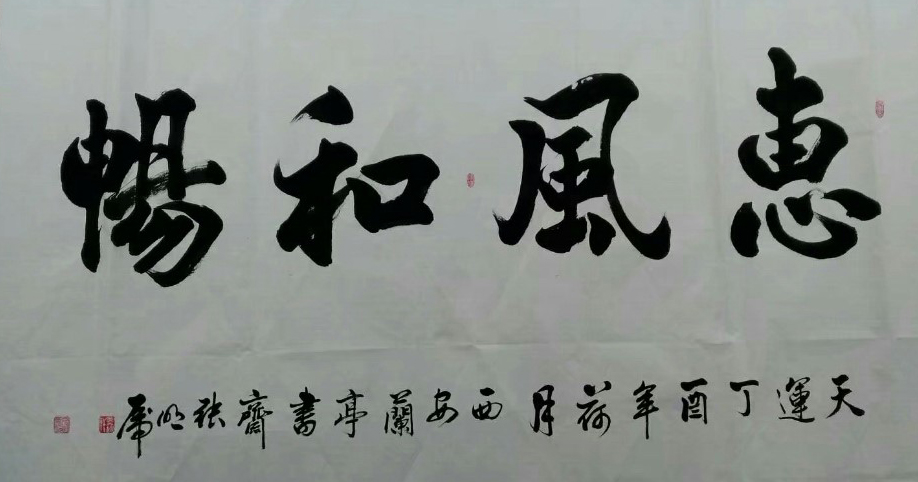 惠風和暢
天運丁酉年荷月西安蘭亭書齋張明虎